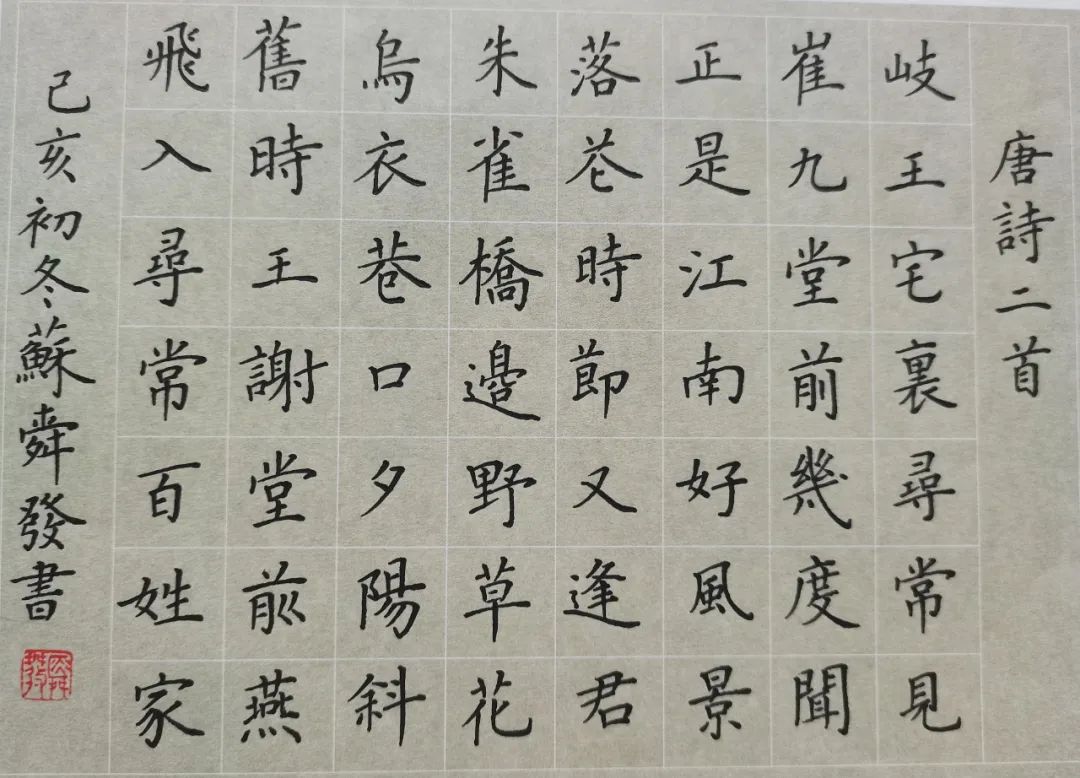 唐詩二首
岐王宅裏尋常見
崔九堂前幾度聞
正是江南好風景
落花時節又逢君
朱雀橋邊野草花
烏衣巷口夕陽斜
舊時王謝堂前燕
飛入尋常百姓家
己亥初冬蘇舜發書
舜發